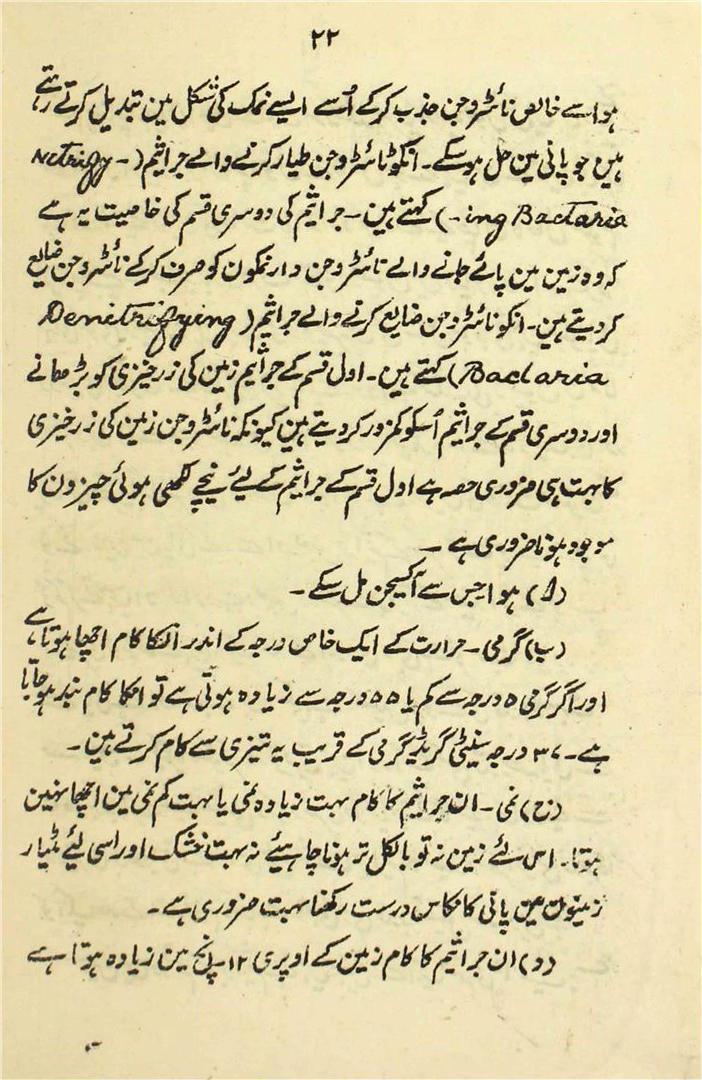 ۲۲
ہوا سے خالص نائٹروجن جذب کرکے اُسے ایسے نمک کی شکل مین تبدیل کرتے رہتے
ہین جو پانی مین حل ہوسکے۔ انکو نائٹروجن طیار کرنے والے جراثیم (Netrify-
-ing Bactaria) کہتے ہین۔ جراثیم کی دوسری قسم کی خاصیت یہ ہے
کہ وہ زمین مین پائے جانے والے نائٹروجن دار نمکون کو صرف کرکے نائٹروجن ضایع
کردیتے ہین۔ انکو نائٹروجن ضایع کرنے والے جراثیم (Denitrifying
Bactaria) کہتے ہین۔ اول قسم کے جراثیم زمین کی زرخیزی کو بڑھاتے
اور دوسری قسم کے جراثیم اُسکو کمزور کردیتے ہین کیونکہ نائٹروجن زمین کی زرخیزی
کا بہت ہی ضروری حصہ ہے اول قسم کے جراثیم کے لیئے نیچے لکھی ہوئی چیزون کا
موجود ہونا ضروری ہے۔
(ا) ہوا جس سے آکسیجن مل سکے۔
(ب) گرمی۔ حرارت کے ایک خاص درجہ کے اندر انکا کام اچھا ہوتا ہے
اور اگر گرمی ۵ درجہ سے کم یا ۵۵ درجہ سے زیادہ ہوتی ہے تو انکا کام بند ہوجاتا
ہے۔ ۳۷ درجہ سینٹی گریڈ گرمی کے قریب یہ تیزی سے کام کرتے ہین۔
(ج) نمی۔ ان جراثیم کا کام بہت زیادہ نمی یا بہت کم نمی مین اچھا نہین
ہوتا۔ اس لئے زمین نہ تو بالکل تر ہونا چاہیئے نہ بہت خشک اور اسی لیئے مٹیار
زمینون مین پانی کا نکاس درست رکھنا بہت ضروری ہے۔
(د) ان جراثیم کا کام زمین کے اوپری ۱۲۔ انچ مین زیادہ ہوتا ہے